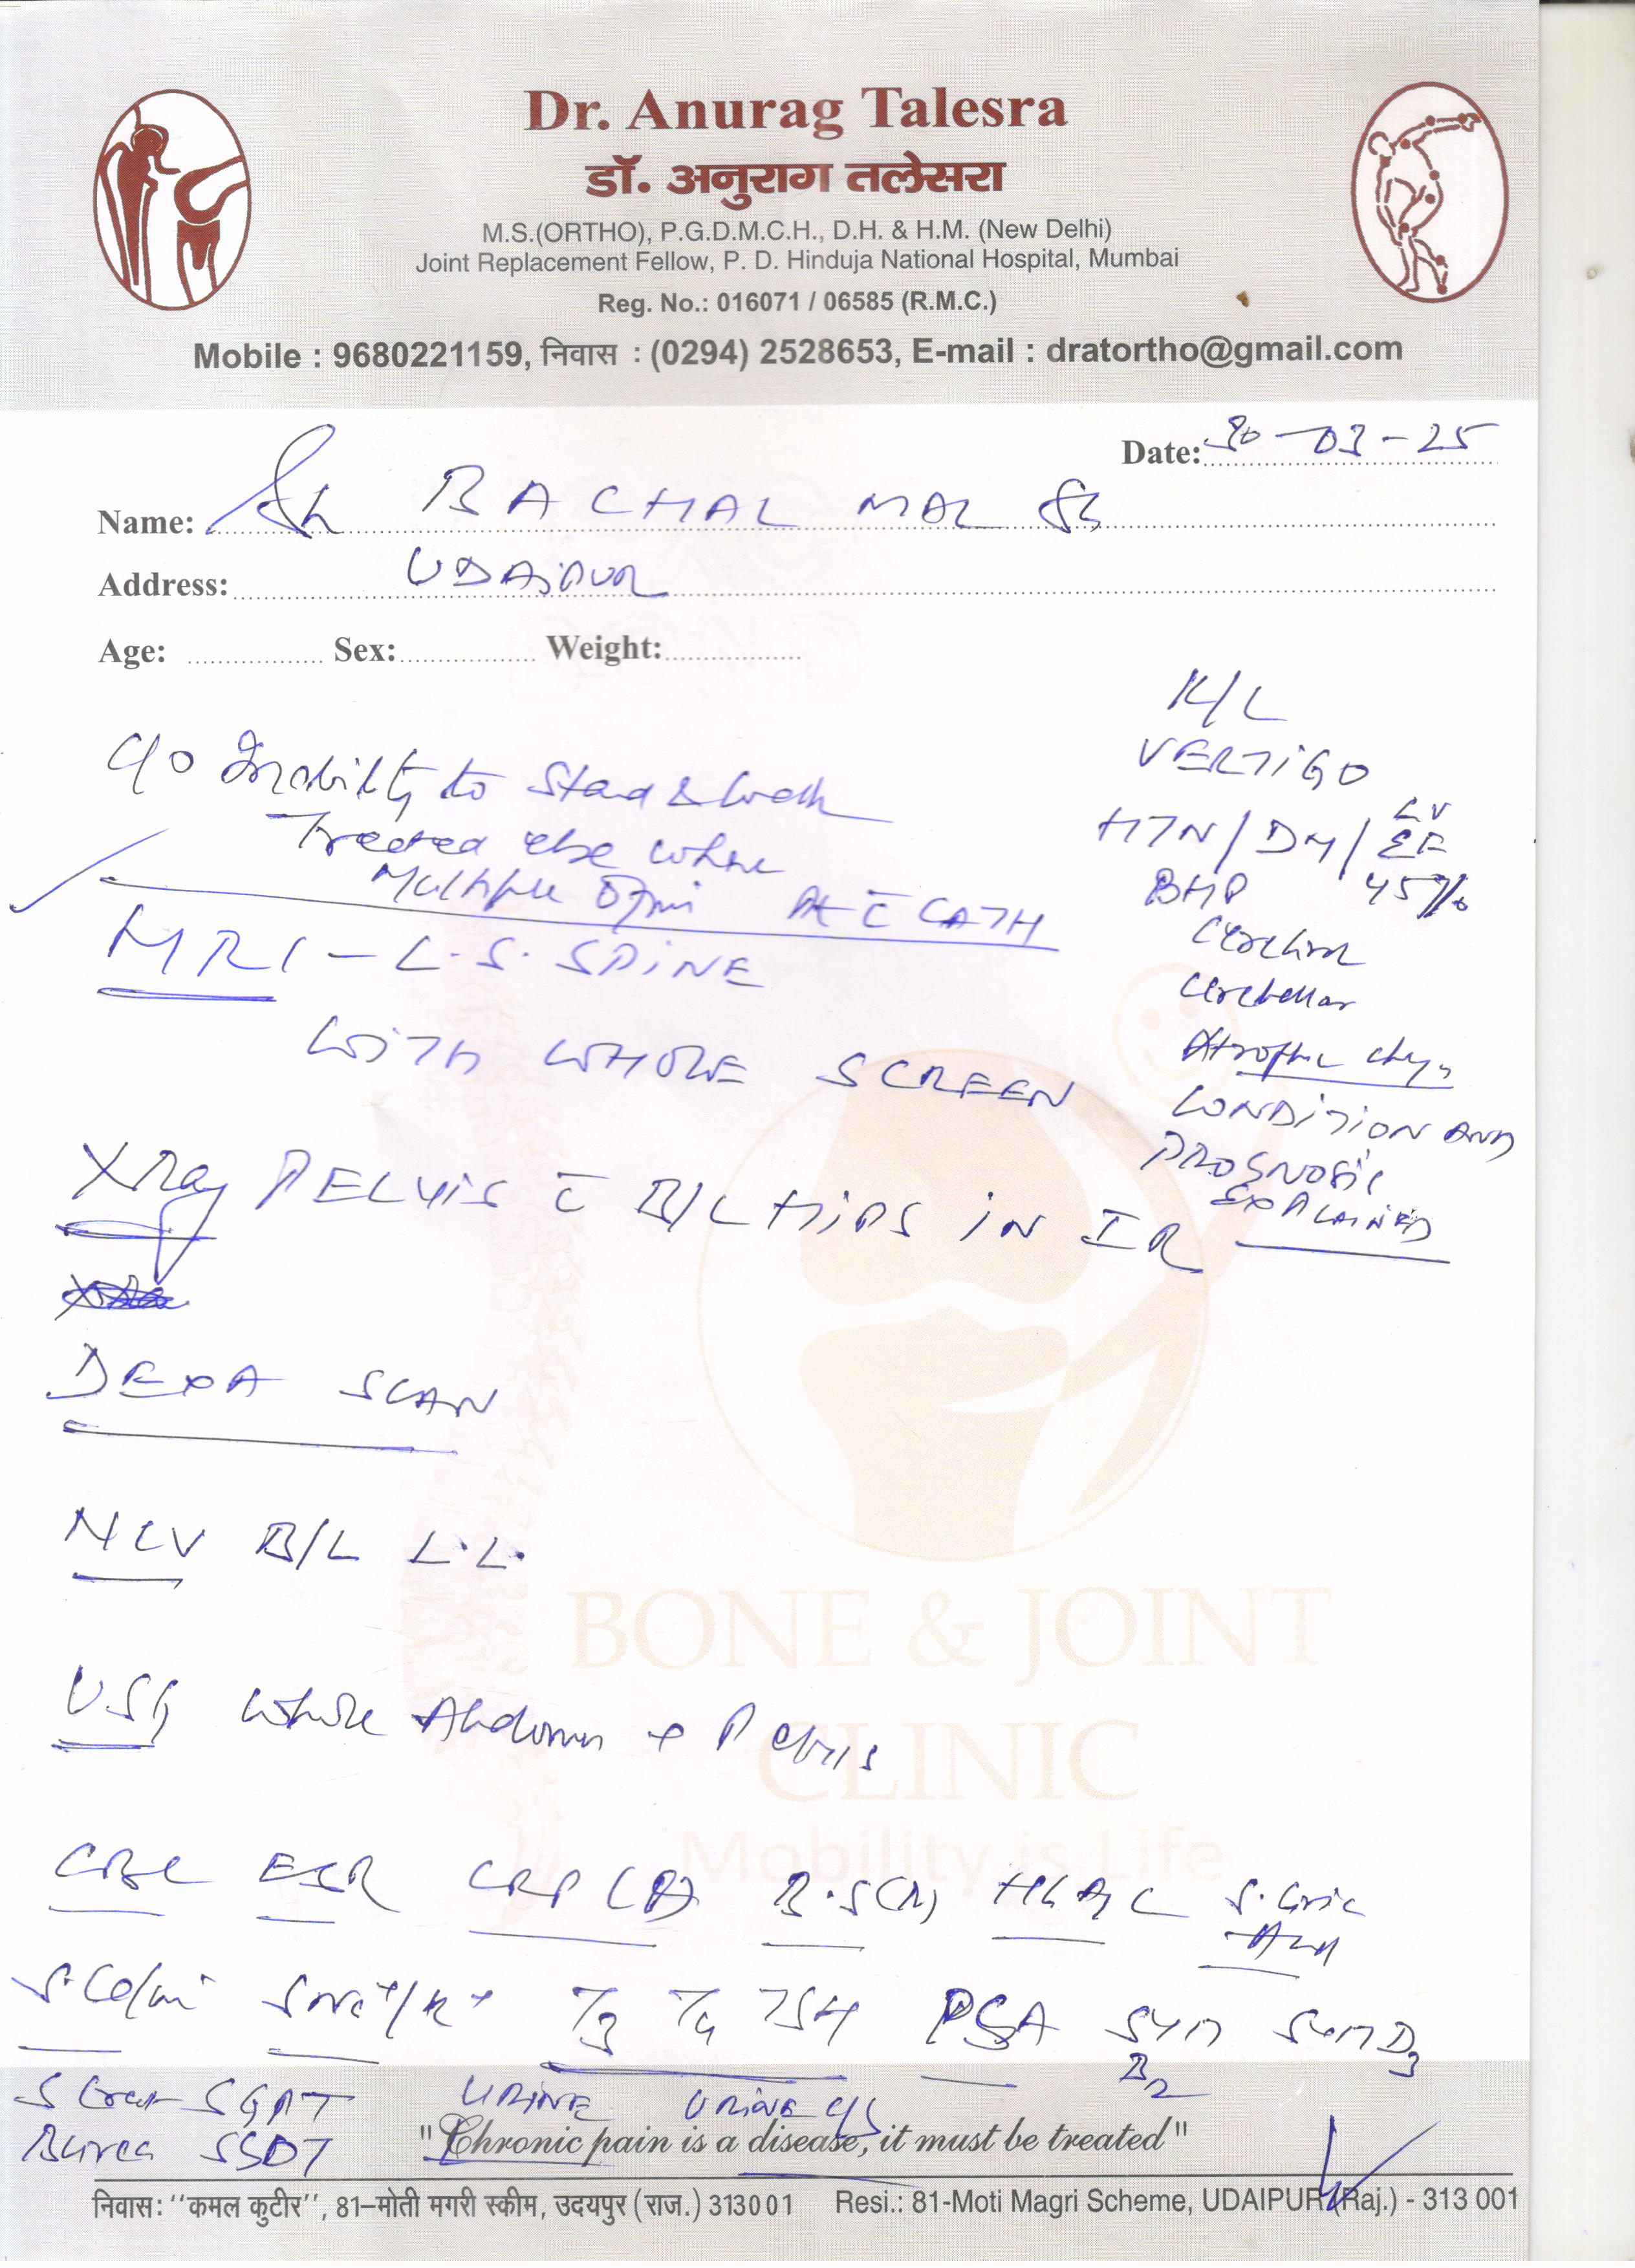 Dr. Anurag Talesra
डॉ. अनुराग तलेसरा
M.S.(ORTHO), P.G.D.M.C.H., D.H. & H.M. (New Delhi)
Joint Replacement Fellow, P. D. Hinduja National Hospital, Mumbai
Reg. No.: 016071 / 06585 (R.M.C.)
Mobile : 9680221159, निवास : (0294) 2528653, E-mail : dratortho@gmail.com
Date: 30-03-25
Name: Sh BACHAL MAL
Address: UDAipUR
Age: Sex: Weight:
K/C
VERTIGO
HTN/DM/ LV EF 45%
BHP
Cerebral
Cerebellar
Atrophic
CONDITION AND
PROGNOSIS
EXPLAINED
C/o Inability to Stand & Walk
Treated else where
Multiple Opini Pt c̄ CATH
MRI - L.S. SPINE
WITH WHOLE SCREEN
XRay PELVIS c̄ B/L HIPS IN IR
DEXA SCAN
NCV B/L L.L.
USG Whole Abdomen + Pelvis
BONE & JOINT
CLINIC
Mobility is Life
CBC ESR CRP (Q) B.S(R) HbA1C S. Uric Acid
S. Calcium S Na+/K+ T3 T4 TSH PSA
S Creat SGPT URINE URINE C/S
B Urea SGOT
"Chronic pain is a disease, it must be treated"
निवास: ‘‘कमल कुटीर’’, 81–मोती मगरी स्कीम, उदयपुर (राज.) 313001 Resi.: 81-Moti Magri Scheme, UDAIPUR (Raj.) - 313 001